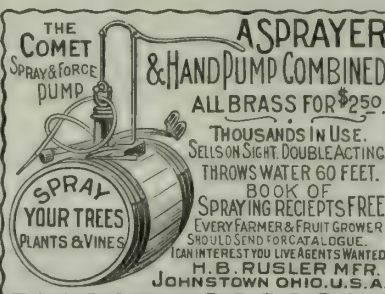 THE
COMET
SPRAY & FORCE
PUMP
A SPRAYER
& HAND PUMP COMBINED
ALL BRASS FOR $2.50.
THOUSANDS IN USE.
SELLS ON SIGHT. DOUBLE ACTING
THROWS WATER 60 FEET.
BOOK OF
SPRAYING RECIEPTS FREE
EVERY FARMER & FRUIT GROWER
SHOULD SEND FOR CATALOGUE.
I CAN INTEREST YOU LIVE AGENTS WANTED
H. B. RUSLER MFR.
JOHNSTOWN OHIO. U.S.A.
SPRAY
YOUR TREES
PLANTS & VINES